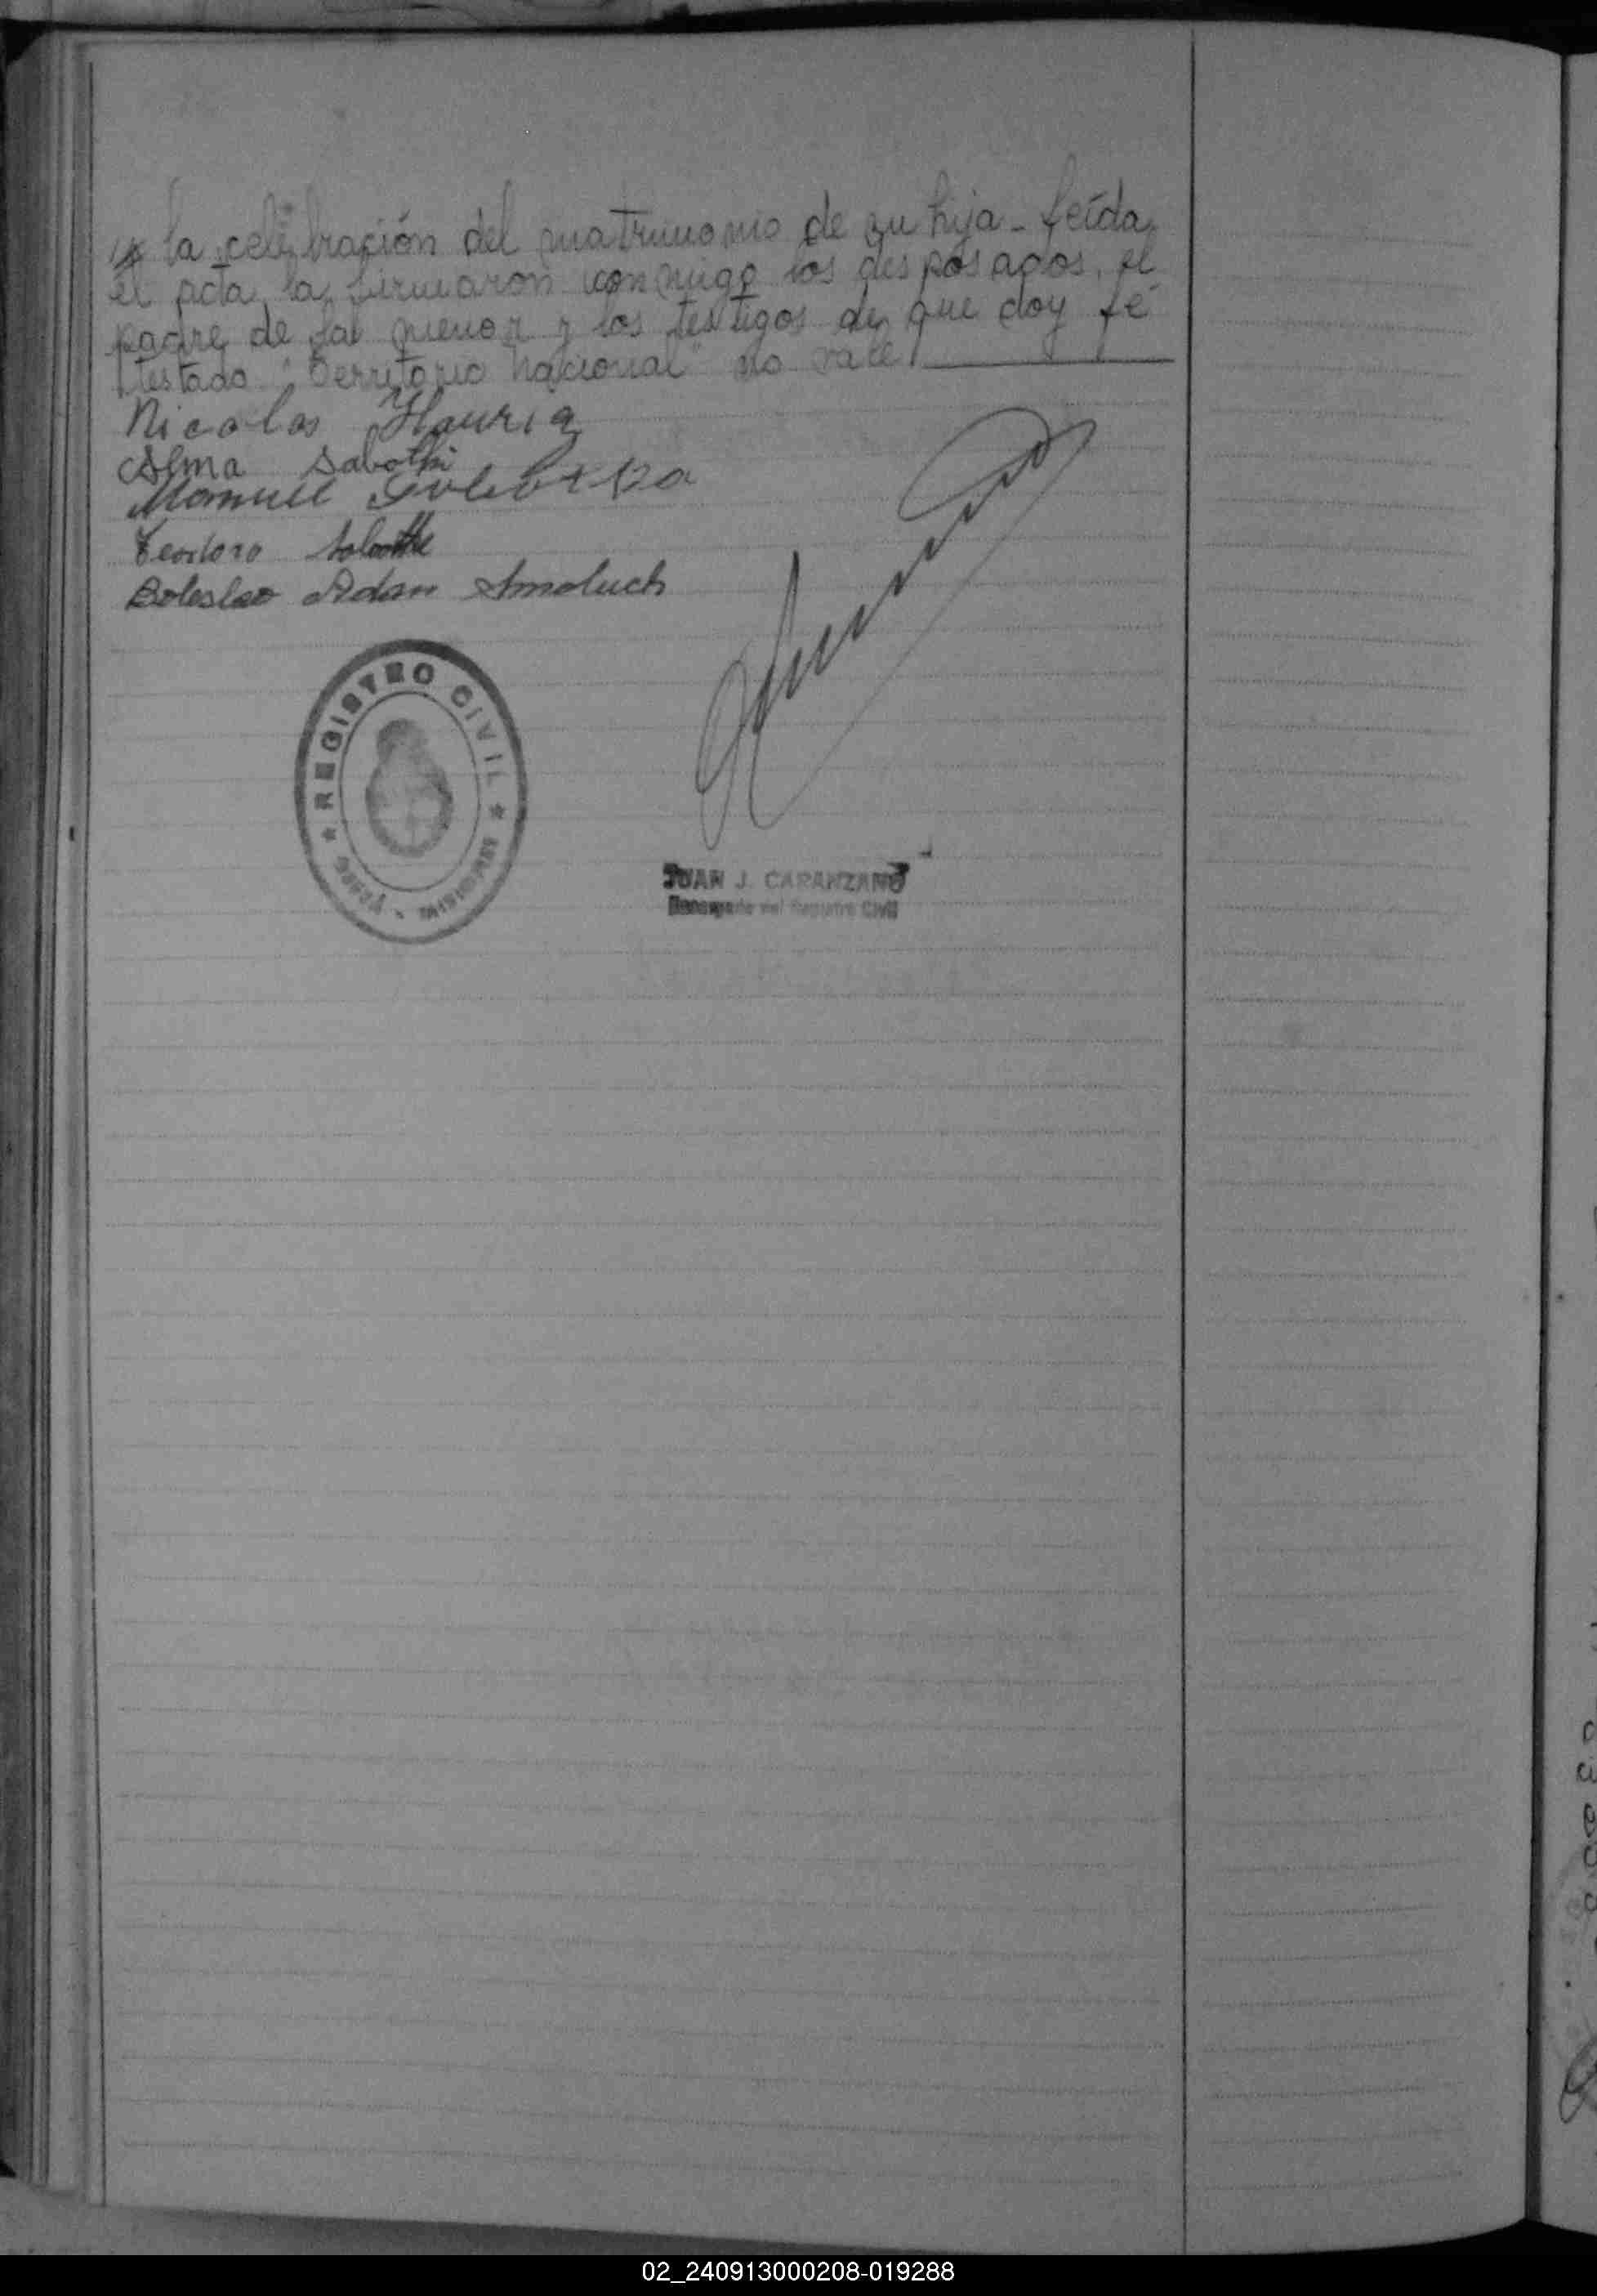 la celebración del matrimonio de su hija - Leída
el acta, la firmaron conmigo los desposados, el
padre de la menor y los testigos de que doy fé
testado: "Territorio Nacional" no vale
Nicolas
Alma Sabothi
Manuel
Teodoro
Boleslao Adan Smoluch
★ REGISTRO CIVIL ★
MISIONES
JUAN J. CARANZANO
Encargado del Registro Civil
02_240913000208-019288